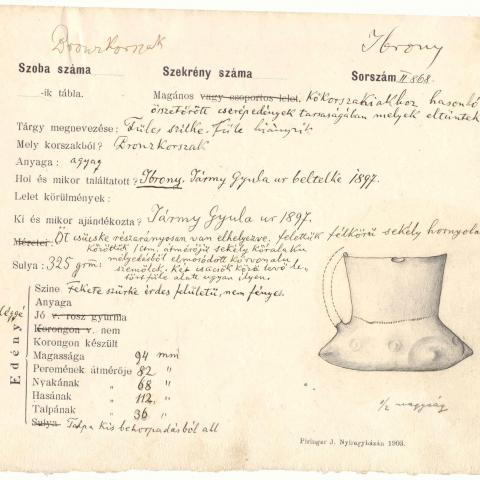 Bronzkorszak
Ibrony
Szoba száma
Szekrény száma
Sorszám II 868.
-ik tábla.
Magános vagy csoportos lelet. Kőkorszakiakhoz hasonló
összetörött cserépedények társaságában melyek eltűntek
Tárgy megnevezése: Füles szilke. Füle hiányzik
Mely korszakból? Bronzkorszak
Anyaga: agyag
Hol és mikor találtatott? Ibrony. Jármy Gyula ur beltelke 1897.
Lelet körülmények:
Ki és mikor ajándékozta? Jármy Gyula ur 1897.
Méretei: Öt csücske részarányosan van elhelyezve, felettök félkörű sekély hornyolat
közöttök 1 cm. átmérőjű sekély köralaku
mélyedésből elmosódott körvonalu
Sulya: 325 grm: szemölcs. Két csücsök közt levő
füle alatt ugyan ilyen.
Edény
Szine Fekete szürke érdes felületű, nem fényes.
Anyaga
Jó v. rosz gyurma
Korongon v. nem
Korongon készült
Magassága 94 mm
Peremének átmérője 82 "
Nyakának " 68 "
Hasának " 112 "
Talpának " 36 "
Sulya Talpa kis behorpadásból áll
1/2 nagyság
Piringer J. Nyíregyházán 1903.